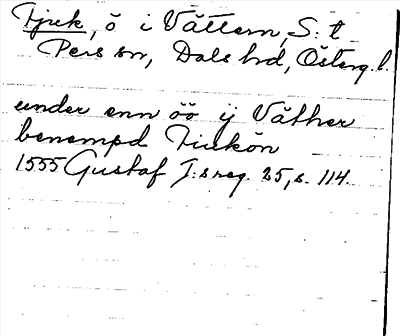 Tjuk, ö i Vättern, S:t
Pers sn, Dals hd, Österg. l.
under enn öö ÿ Väther
benempd Tiukön
1555 Gustaf I:s reg. 25, s. 114.